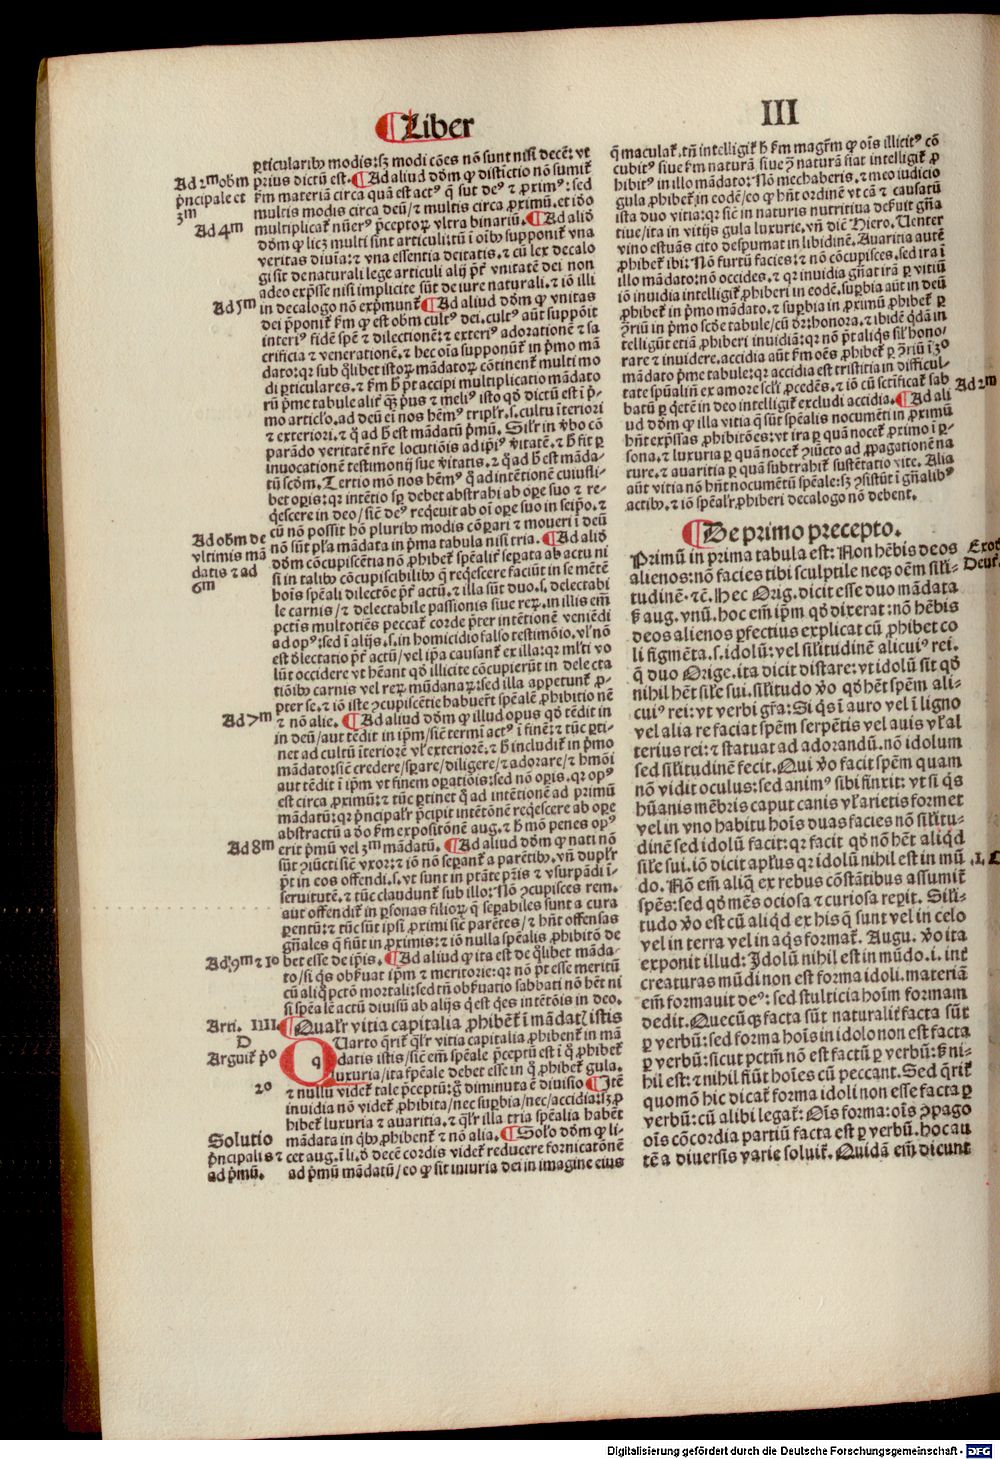 Liber
III
ꝑticularibꝰ modis: sꝫ modi cões nõ sunt nisi decẽ: vt
prius dictũ est. Ad aliud dõm ꝙ distictio nõ sumit̃
km materiã circa quã est actꝰ q̃ sut deꝰ ⁊ ꝓximꝰ: sed
multis modis circa deũ/⁊ multis circa ꝓximũ. et iõo
multiplicat̃ nũerꝰ p̃ceptoꝝ vltra binariũ. Ad aliõ
dõm ꝙ licꝫ multi sint articuli: tñ ĩ oĩbꝰ supponit̃ vna
veritas diuia: ⁊ vna essentia deitatis. ⁊ cũ lex decalo
gi sit de naturali lege articuli alij p̃t̃ vnitatẽ dei non
adeo exp̃sse nisi implicite sũt de iure naturali. ⁊ iõ illi
in decalogo nõ exp̃munt̃ Ad aliud dõm ꝙ vnitas
dei p̃ponit̃ km ꝙ est obm cultꝰ dei. cultꝰ aũt suppõit
interiꝰ fidẽ spẽ ⁊ dilectionẽ: ⁊ exteriꝰ adorationẽ ⁊ sa
crificia ⁊ venerationẽ. ⁊ hec oĩa supponũt̃ in p̃mo mã
dato: qꝛ sub q̃libet istoꝝ mãdatoꝝ cõtinent̃ multi mo
di ꝑticulares. ⁊ km h̃ p̃t accipi multiplicatio mãdato
rũ p̃me tabule alit̃ q̃ꝫ p̃us ⁊ meliꝰ isto qõ dictũ est ĩ p̃-
mo articlo. ad deũ eĩ nos hẽmꝰ tripl̃r. s. cultu ĩteriori
⁊ exteriori. ⁊ q̃ ad h̃ est mãdatũ p̃mũ. Sil̃r in ṽbo cõ
parãdo veritatẽ nr̃e locutiõis ad ip̃iꝰ ṽitatẽ. ⁊ h̃ fit ꝑ
inuocationẽ testimonij sue ṽitatis. ⁊ q̃ ad h̃ est mãda-
tũ scõm. Tertio mõ nos hẽmꝰ q̃ ad intẽtionẽ cuiusli-
bet oꝑis: qꝛ intẽtio sp̃ debet abstrahi ab oꝑe suo ⁊ re-
q̃escere in deo/ siẽ deꝰ req̃euit ab oĩ oꝑe suo in seip̃o. ⁊
cũ nõ possit hõ pluribꝰ modis cõꝑari ⁊ moueri ĩ deũ
nõ sũt pl̃a mãdata in p̃ma tabula nisi tria. Ad aliõ
dõm cõcupiscẽtia nõ ꝓhibet̃ spẽalit̃ seꝑata ab actu ni
si in talibꝰ cõcupiscibilibꝰ q̃ req̃escere faciũt in se mẽtẽ
hoĩs spẽali dilectõe p̃t̃ actũ. ⁊ illa sũt duo. s. delectabi
le carnis/⁊ delectabile passionis siue reꝝ. in illis em̃
pctĩs multotiẽs peccat̃ corde p̃ter intẽtionẽ veniẽdi
ad opꝰ: sed ĩ alijs. s. in homicidio falso testimõio. vl̃ nõ
est d̃lectatio p̃t̃ actũ/ vel ip̃a causant̃ ex illa: qꝛ ml̃ti vo
lũt occidere vt hẽant qõ illicite cõcupierũt in delecta
tiõibꝰ carnis vel reꝝ mũdanaꝝ: sed illa appetunt̃ ꝓ-
pter se. ⁊ iõ iste ꝯcupiscẽtie habuer̃t spẽalẽ ꝓhibitio nẽ
⁊ nõ alie. Ad aliud dõm ꝙ illud opus qõ tẽdit in
in deũ/ aut tẽdit in ip̃m/ siẽ termĩ actꝰ ĩ finẽ: ⁊ tũc ꝑti-
net ad cultũ ĩteriorẽ vl̃ exteriorẽ. ⁊ h̃ includit̃ in p̃mo
mãdato: siẽ credere/ sꝑare/ diligere/ ⁊ adorare/ ⁊ hmõi
aut tẽdit ĩ ip̃m vt finem oꝑatiõis: sed nõ oꝑis. qꝛ opꝰ
est circa ꝓximũ: ⁊ tũc ꝑtinet q̃ ad intẽtionẽ ad primũ
mãdatũ: qꝛ p̃ncipal̃r p̃cipit intẽtõnẽ req̃escere ab oꝑe
abstractũ a d̃o km expositõnẽ aug. ⁊ h̃ mõ penes opꝰ
erit p̃mũ vel 3m mãdatũ. Ad aliud dõm ꝙ nati nõ
sũt ꝯiũcti siẽ vxor: ⁊ iõ nõ seꝑant̃ a parẽtibꝰ. vñ dupl̃r
p̃t in eos offendi. s. vt sunt in ptãte pr̃is ⁊ vsurpãdi ĩ-
seruitutẽ. ⁊ tũc claudunt̃ sub illo: Nõ ꝯcupisces rem.
aut offendit̃ in ꝑsonas filioꝝ q̃ seꝑabiles sunt a cura
ꝑentũ: ⁊ tũc sũt ipsi ꝓximi siẽ parẽtes/ ⁊ hñt offensas
gñales q̃ fiũt in ꝓximis: ⁊ iõ nulla spẽalis ꝓhibitõ de
bet esse de ip̃is. Ad aliud ꝙ ita est de q̃libet mãda-
to/ si q̃s obẽuat ip̃m ⁊ meritorie: qꝛ nõ p̃t esse meritũ
cũ aliq̃ pctõ mortali: sed tñ obẽuatio sabbati nõ hẽt ni
si spẽalẽ actũ diuisũ ab alijs q̃ est q̃es intẽtõis in deo.
Qual̃r vitia capitalia ꝓhibẽt̃ ĩ mãdat̃ istis
Quarto q̃rit̃ ql̃r vitia capitalia ꝓhibent̃ in mã
datis istis/ siẽ em̃ spẽale p̃ceptũ est ĩ q̃ ꝓhibet̃
luxuria/ ita spẽale debet esse in q̃ ꝓhibet̃ gula.
⁊ nullũ videt̃ tale p̃ceptũ: g̃ diminuta ẽ diuisio Itẽ
inuidia nõ videt̃ ꝓhibita/ nec suꝑbia/ nec/ accidia: sꝫ ꝓ
hibet̃ luxuria ⁊ auaritia. ⁊ ql̃r illa tria spẽalia habẽt
mãdata in q̃bꝰ ꝓhibent̃ ⁊ nõ alia. Sol̃o dõm ꝙ li-
cet aug. ĩ li. d̃ decẽ cordis videt̃ reducere fornicatõnẽ
ad p̃mũ mãdatũ/ eo ꝙ sit iniuria dei in imagine eius
Ad 2m obm
p̃ncipale et
3m
Ad 4m
Ad 5m
Ad obm de
vltimis mã
datis ⁊ ad
6m
Ad 7m
Ad 8m
Ad 9m ⁊ 10
Arti. IIII.
D
Arguit̃ p̃o
2o
Solutio
p̃ncipalis ⁊
ad p̃mũ.
q̃ maculat̃. tñ intelligit̃ h̃ km magr̃m ꝙ oĩs illicitꝰ cõ
cubitꝰ siue km naturã siue ꝯ̃ naturã fiat intelligit̃ ꝓ
hibitꝰ in illo mãdato: Nõ mechaberis. ⁊ meo iudicio
gula ꝓhibet̃ in eodẽ/ eo ꝙ hñt ordinẽ vt cã ⁊ causatũ
ista duo vitia: qꝛ siẽ in naturis nutritiua dẽuit gñа
tiue/ ita in vitijs gula luxurie. vñ diẽ Hiero. Uenter
vino estuãs cito despumat in libidinẽ. Auaritia autẽ
ꝓhibet̃ ibi: Nõ furtũ facies: ⁊ nõ cõcupisces. sed ira ĩ
illo mãdato: nõ occides. ⁊ qꝛ inuidia gñat irã ꝑ vitiũ
iõ inuidia intelligit̃ ꝓhiberi in eodẽ. suꝑbia aũt in deũ
ꝓhibet̃ in p̃mo mãdato. ⁊ suꝑbia in ꝓximũ ꝓhibet̃ ꝑ
ꝯ̃riũ in p̃mo scõe tabule/ cũ dr̃: honora. ⁊ ibidẽ qdã in
telligũt etiã ꝓhiberi inuidiã: qꝛ nõ p̃t aliq̃s sil̃ hono-
rare ⁊ inuidere. accidia aũt km oẽs ꝓhibet̃ ꝑ ꝯ̃riũ ĩ 3o
mãdato p̃me tabule: qꝛ accidia est tristitia in ꝯ̃fficul-
tate spũaliũ ex amore scl̃i ꝓcedẽs. ⁊ iõ cũ sctĩficat̃ sab
batũ ꝑ q̃etẽ in deo intelligit̃ excludi accidia. Ad ali
ud dõm ꝙ illa vitia q̃ sũt spẽalis nocumẽti in ꝓximũ
hñt exp̃ssas ꝓhibitões: vt ira ꝑ quã nocet̃ ꝓximo ĩ ꝑ-
sona. ⁊ luxuria ꝑ quã nocet̃ ꝯiũcto ad ꝓpagationẽ na
ture. ⁊ auaritia ꝑ quã subtrahit̃ sustẽtatio vite. Alia
aũt vitia nõ hñt nocumẽtũ spẽale: sꝫ ꝯsistũt ĩ gñalibꝰ
actibꝰ. ⁊ iõ spẽal̃r ꝓhiberi decalogo nõ debent.
De primo precepto.
Primũ in prima tabula est: Non hẽbis deos
alienos: nõ facies tibi sculptile neqꝫ oẽm sili-
tudinẽ. ⁊ẽ. Hec Orig. dicit esse duo mãdata
ẞ aug. vnũ. hoc em̃ ip̃m qõ dixerat: nõ hẽbis
deos alienos ꝑfectius explicat cũ ꝓhibet co
li figmẽta. s. idolũ: vel sil̃itudinẽ alicuiꝰ rei.
q̃ duo Orige. ita dicit distare: vt idolũ sit qõ
nihil hẽt sil̃e sui. sil̃itudo ṽo qõ hẽt spẽm ali-
cuiꝰ rei: vt verbi gr̃a: Si q̃s ĩ auro vel ĩ ligno
vel alia re faciat spẽm serpẽtis vel auis vl̃ al
terius rei: ⁊ statuat ad adorandũ. nõ idolum
sed sil̃itudinẽ fecit. Qui ṽo facit spẽm quam
nõ vidit oculus: sed animꝰ sibi finxit: vt si q̃s
hũanis mẽbris caput canis vl̃ arietis formet
vel in vno habitu hoĩs duas facies nõ sil̃itu-
dinẽ sed idolũ facit: qꝛ facit qõ nõ hẽt aliqd
sil̃e sui. iõ dicit apl̃us qꝛ idolũ nihil est in mũ
do. Nõ em̃ aliq̃ ex rebus cõstãtibus assumit̃
spẽs: sed qõ mẽs ociosa ⁊ curiosa reꝑit. Sil̃i-
tudo ṽo est cũ aliqd ex his q̃ sunt vel in celo
vel in terra vel in aq̃s format̃. Augu. ṽo ita
exponit illud: Idolũ nihil est in mũdo. i. int̃
creaturas mũdi non est forma idoli. materiã
em̃ formauit deꝰ: sed stulticia hoĩm formam
dedit. Quecũqꝫ facta sũt naturalit̃ facta sũt
ꝑ verbũ: sed forma hoĩs in idolo non est facta
ꝑ verbũ: sicut pctm̃ nõ est factũ ꝑ verbũ: ẞ ni-
hil est: ⁊ nihil fiũt hoĩes cũ peccant. Sed q̃rit̃
quomõ hic dicat̃ forma idoli non esse facta ꝑ
verbũ: cũ alibi legat̃: Oĩs forma: oĩs ꝯpago
oĩs cõcordia partiũ facta est ꝑ verbũ. hoc au
tẽ a diuersis varie soluit̃. Quidã em̃ dicunt
Ad 2m
Exod
Deut̃.